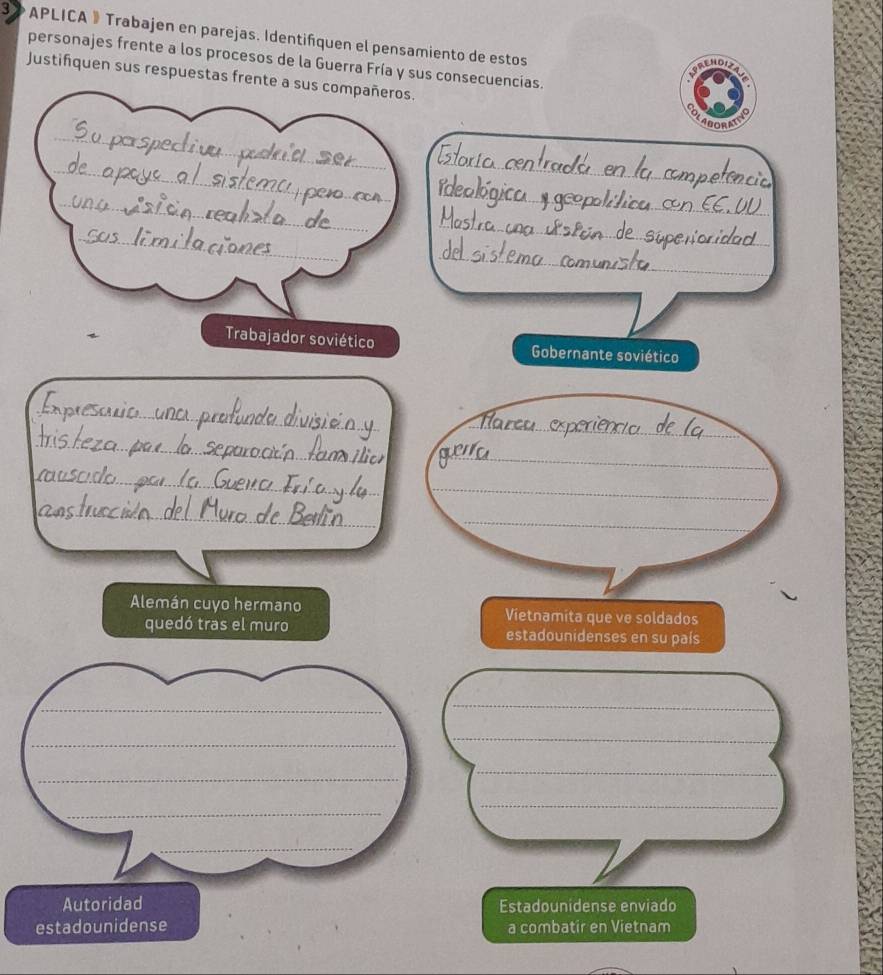 3 APLICA Trabajen en parejas. Identifiquen el pensamiento de estos
personajes frente a los procesos de la Guerra Fría y sus consecuencias.
Justifiquen sus respuestas frente a sus compañeros.
APRENDIZAJE
COLABORATIVO
Su perspectiva podría ser
de apoyo al sistema, pero con
una visión realista de
sus limitaciones
Trabajador soviético
Estaría centrada en la competencia
ideológica y geopolítica con EE.UU
Mostra una visión de superioridad
del sistema comunista
Gobernante soviético
Expresaria una profunda división y
tristeza por la separación familiar
causada por la Guerra Fría y la
construcción del Muro de Berlín
Alemán cuyo hermano
quedó tras el muro
experiencia de la
guerra
Vietnamita que ve soldados
estadounidenses en su país
Autoridad
estadounidense
Estadounidense enviado
a combatir en Vietnam